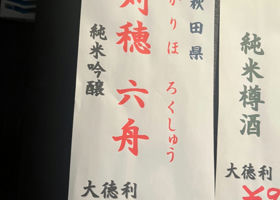 秋田県
かりほ ろくしゅう
刈穂 六舟
純米吟醸
大徳利
純米樽酒
大徳利